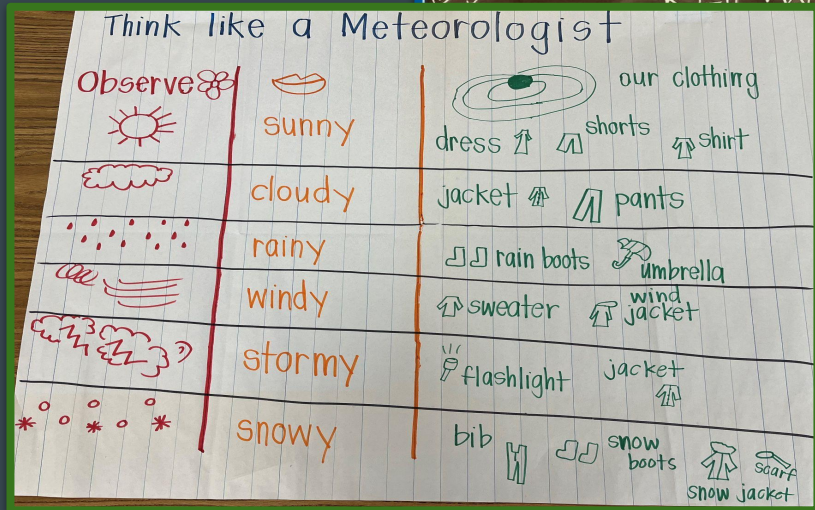 Think like a Meteorologist
Observe our clothing
sunny dress shorts shirt
cloudy jacket pants
rainy rain boots umbrella
windy sweater wind jacket
stormy flashlight jacket
snowy bib snow boots scarf
snow jacket